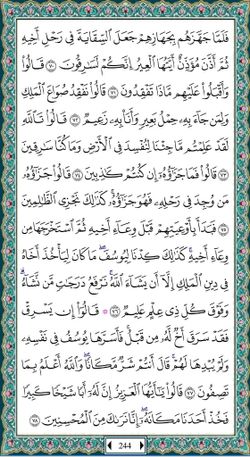 فَلَمَّا جَهَّزَهُم بِجَهَازِهِمْ جَعَلَ ٱلسِّقَايَةَ فِى رَحْلِ أَخِيهِ
ثُمَّ أَذَّنَ مُؤَذِّنٌ أَيَّتُهَا ٱلْعِيرُ إِنَّكُمْ لَسَٰرِقُونَ ٧٠ قَالُوا۟
وَأَقْبَلُوا۟ عَلَيْهِم مَّاذَا تَفْقِدُونَ ٧١ قَالُوا۟ نَفْقِدُ صُوَاعَ ٱلْمَلِكِ
وَلِمَن جَآءَ بِهِۦ حِمْلُ بَعِيرٍ وَأَنَا۠ بِهِۦ زَعِيمٌ ٧٢ قَالُوا۟ تَٱللَّهِ
لَقَدْ عَلِمْتُم مَّا جِئْنَا لِنُفْسِدَ فِى ٱلْأَرْضِ وَمَا كُنَّا سَٰرِقِينَ
٧٣ قَالُوا۟ فَمَا جَزَٰٓؤُهُۥٓ إِن كُنتُمْ كَٰذِبِينَ ٧٤ قَالُوا۟ جَزَٰٓؤُهُۥ
مَن وُجِدَ فِى رَحْلِهِۦ فَهُوَ جَزَٰٓؤُهُۥ كَذَٰلِكَ نَجْزِى ٱلظَّٰلِمِينَ
٧٥ فَبَدَأَ بِأَوْعِيَتِهِمْ قَبْلَ وِعَآءِ أَخِيهِ ثُمَّ ٱسْتَخْرَجَهَا مِن
وِعَآءِ أَخِيهِ كَذَٰلِكَ كِدْنَا لِيُوسُفَ مَا كَانَ لِيَأْخُذَ أَخَاهُ
فِى دِينِ ٱلْمَلِكِ إِلَّآ أَن يَشَآءَ ٱللَّهُ نَرْفَعُ دَرَجَٰتٍ مَّن نَّشَآءُ
وَفَوْقَ كُلِّ ذِى عِلْمٍ عَلِيمٌ ٧٦ ۞ قَالُوٓا۟ إِن يَسْرِقْ
فَقَدْ سَرَقَ أَخٌ لَّهُۥ مِن قَبْلُ فَأَسَرَّهَا يُوسُفُ فِى نَفْسِهِۦ
وَلَمْ يُبْدِهَا لَهُمْ قَالَ أَنتُمْ شَرٌّ مَّكَانًا وَٱللَّهُ أَعْلَمُ بِمَا
تَصِفُونَ ٧٧ قَالُوا۟ يَٰٓأَيُّهَا ٱلْعَزِيزُ إِنَّ لَهُۥٓ أَبًا شَيْخًا كَبِيرًا
فَخُذْ أَحَدَنَا مَكَانَهُۥٓ إِنَّا نَرَىٰكَ مِنَ ٱلْمُحْسِنِينَ ٧٨
244